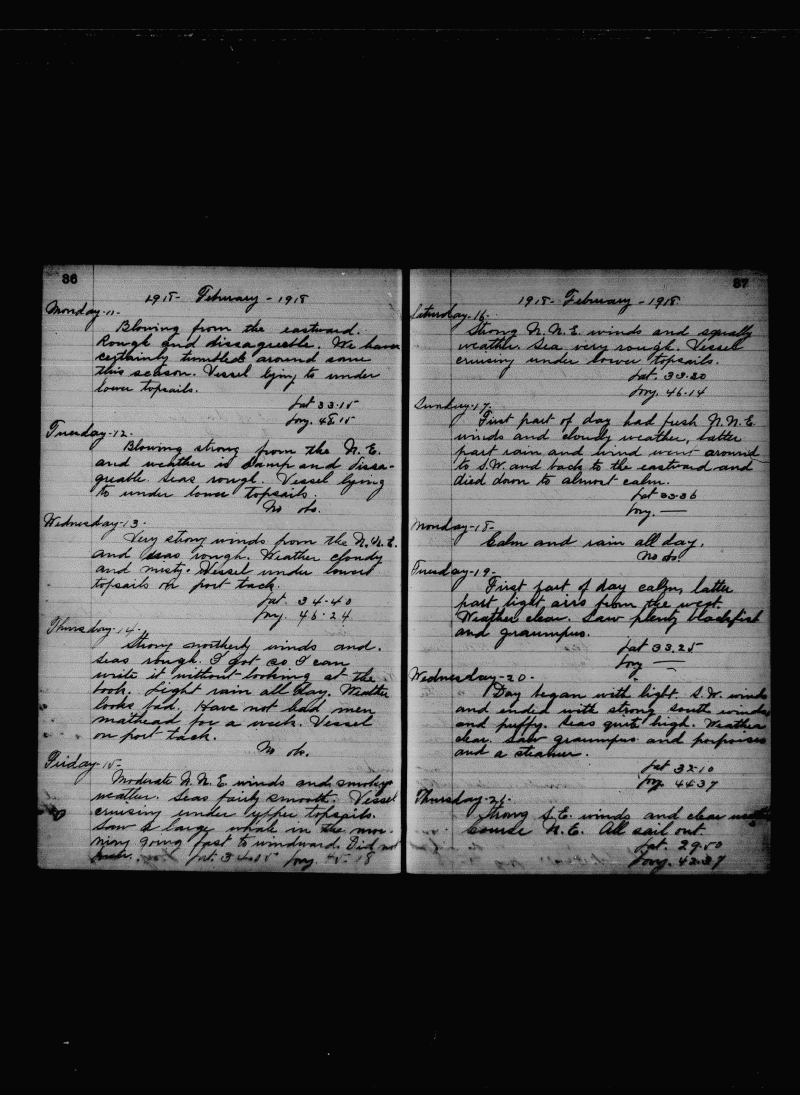 36
1918 - February - 1918
Monday-11-
Blowing from the eastward.
Rough and dissagreeble. We have
certainly tumbled around some
this season. Vessel lying to under
lower topsails.
Lat 33-15
Long. 48-15
Tuesday-12-
Blowing strong from the N. E.
and weather is damp and dissa-
greable. Seas rough. Vessel lying
to under lower topsails.
No obs.
Wednesday-13-
Very strong winds from the N.N.E.
and seas rough. Weather cloudy
and misty. Vessel under lower
topsails on port tack.
Lat. 34-40
Long. 46-24
Thursday-14-
Strong northerly winds and
seas rough. I got so I can
write it without looking at the
book. Light rain all day. Weather
looks bad. Have not had men
mathead for a week. Vessel
on port tack.
No obs.
Friday-15-
Moderate N.N.E winds and smokey
weather. Seas fairly smooth. Vessel
cruising under upper topsails.
Saw a large whale in the mor-
ning going fast to windward. Did not
Lat. 34-05 Long. 45-18
37
1918- February -1918
Saturday-16-
Strong N.N.E. winds and squally
weather. Sea very rough. Vessel
cruising under lower topsails.
Lat. 33-20
Long. 46-14
Sunday-17-
First part of day had fresh N.N.E.
winds and cloudy weather, latter
part rain and wind went around
to S.W. and back to the eastward and
died down to almost calm.
Lat 33-36
Long. —
Monday-18-
Calm and rain all day.
No obs.
Tuesday-19-
First part of day calm, latter
part light airs from the west.
Weather clear. Saw plenty blackfish
and graumpus.
Lat 33.25
Long —
Wednesday-20-
Day began with light S.W. winds
and ended with strong south winds
and puffy. Seas quite high. Weather
clear. Saw graumpus and porpoises
and a steamer.
Lat 32-10
Long. 44-37
Thursday-21-
Strong S.E. winds and clear weather
Course N.E. All sail out.
Lat. 29-50
Long. 42-37